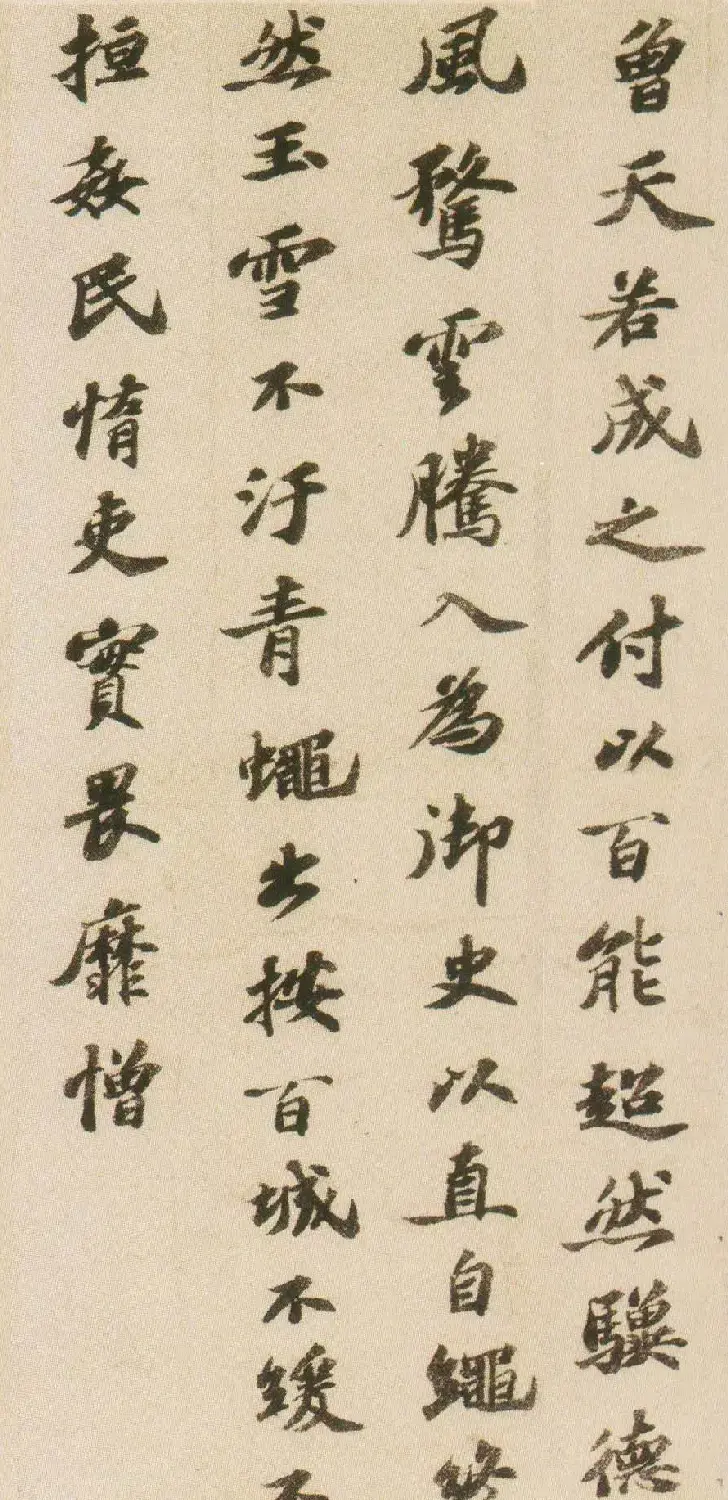 曾天若成之付以百能超然驥德
風騖雲騰入為御史以直自繩
然玉雪不汙青蠅出按百城不緩不
搄姦民惰吏實畏靡憎